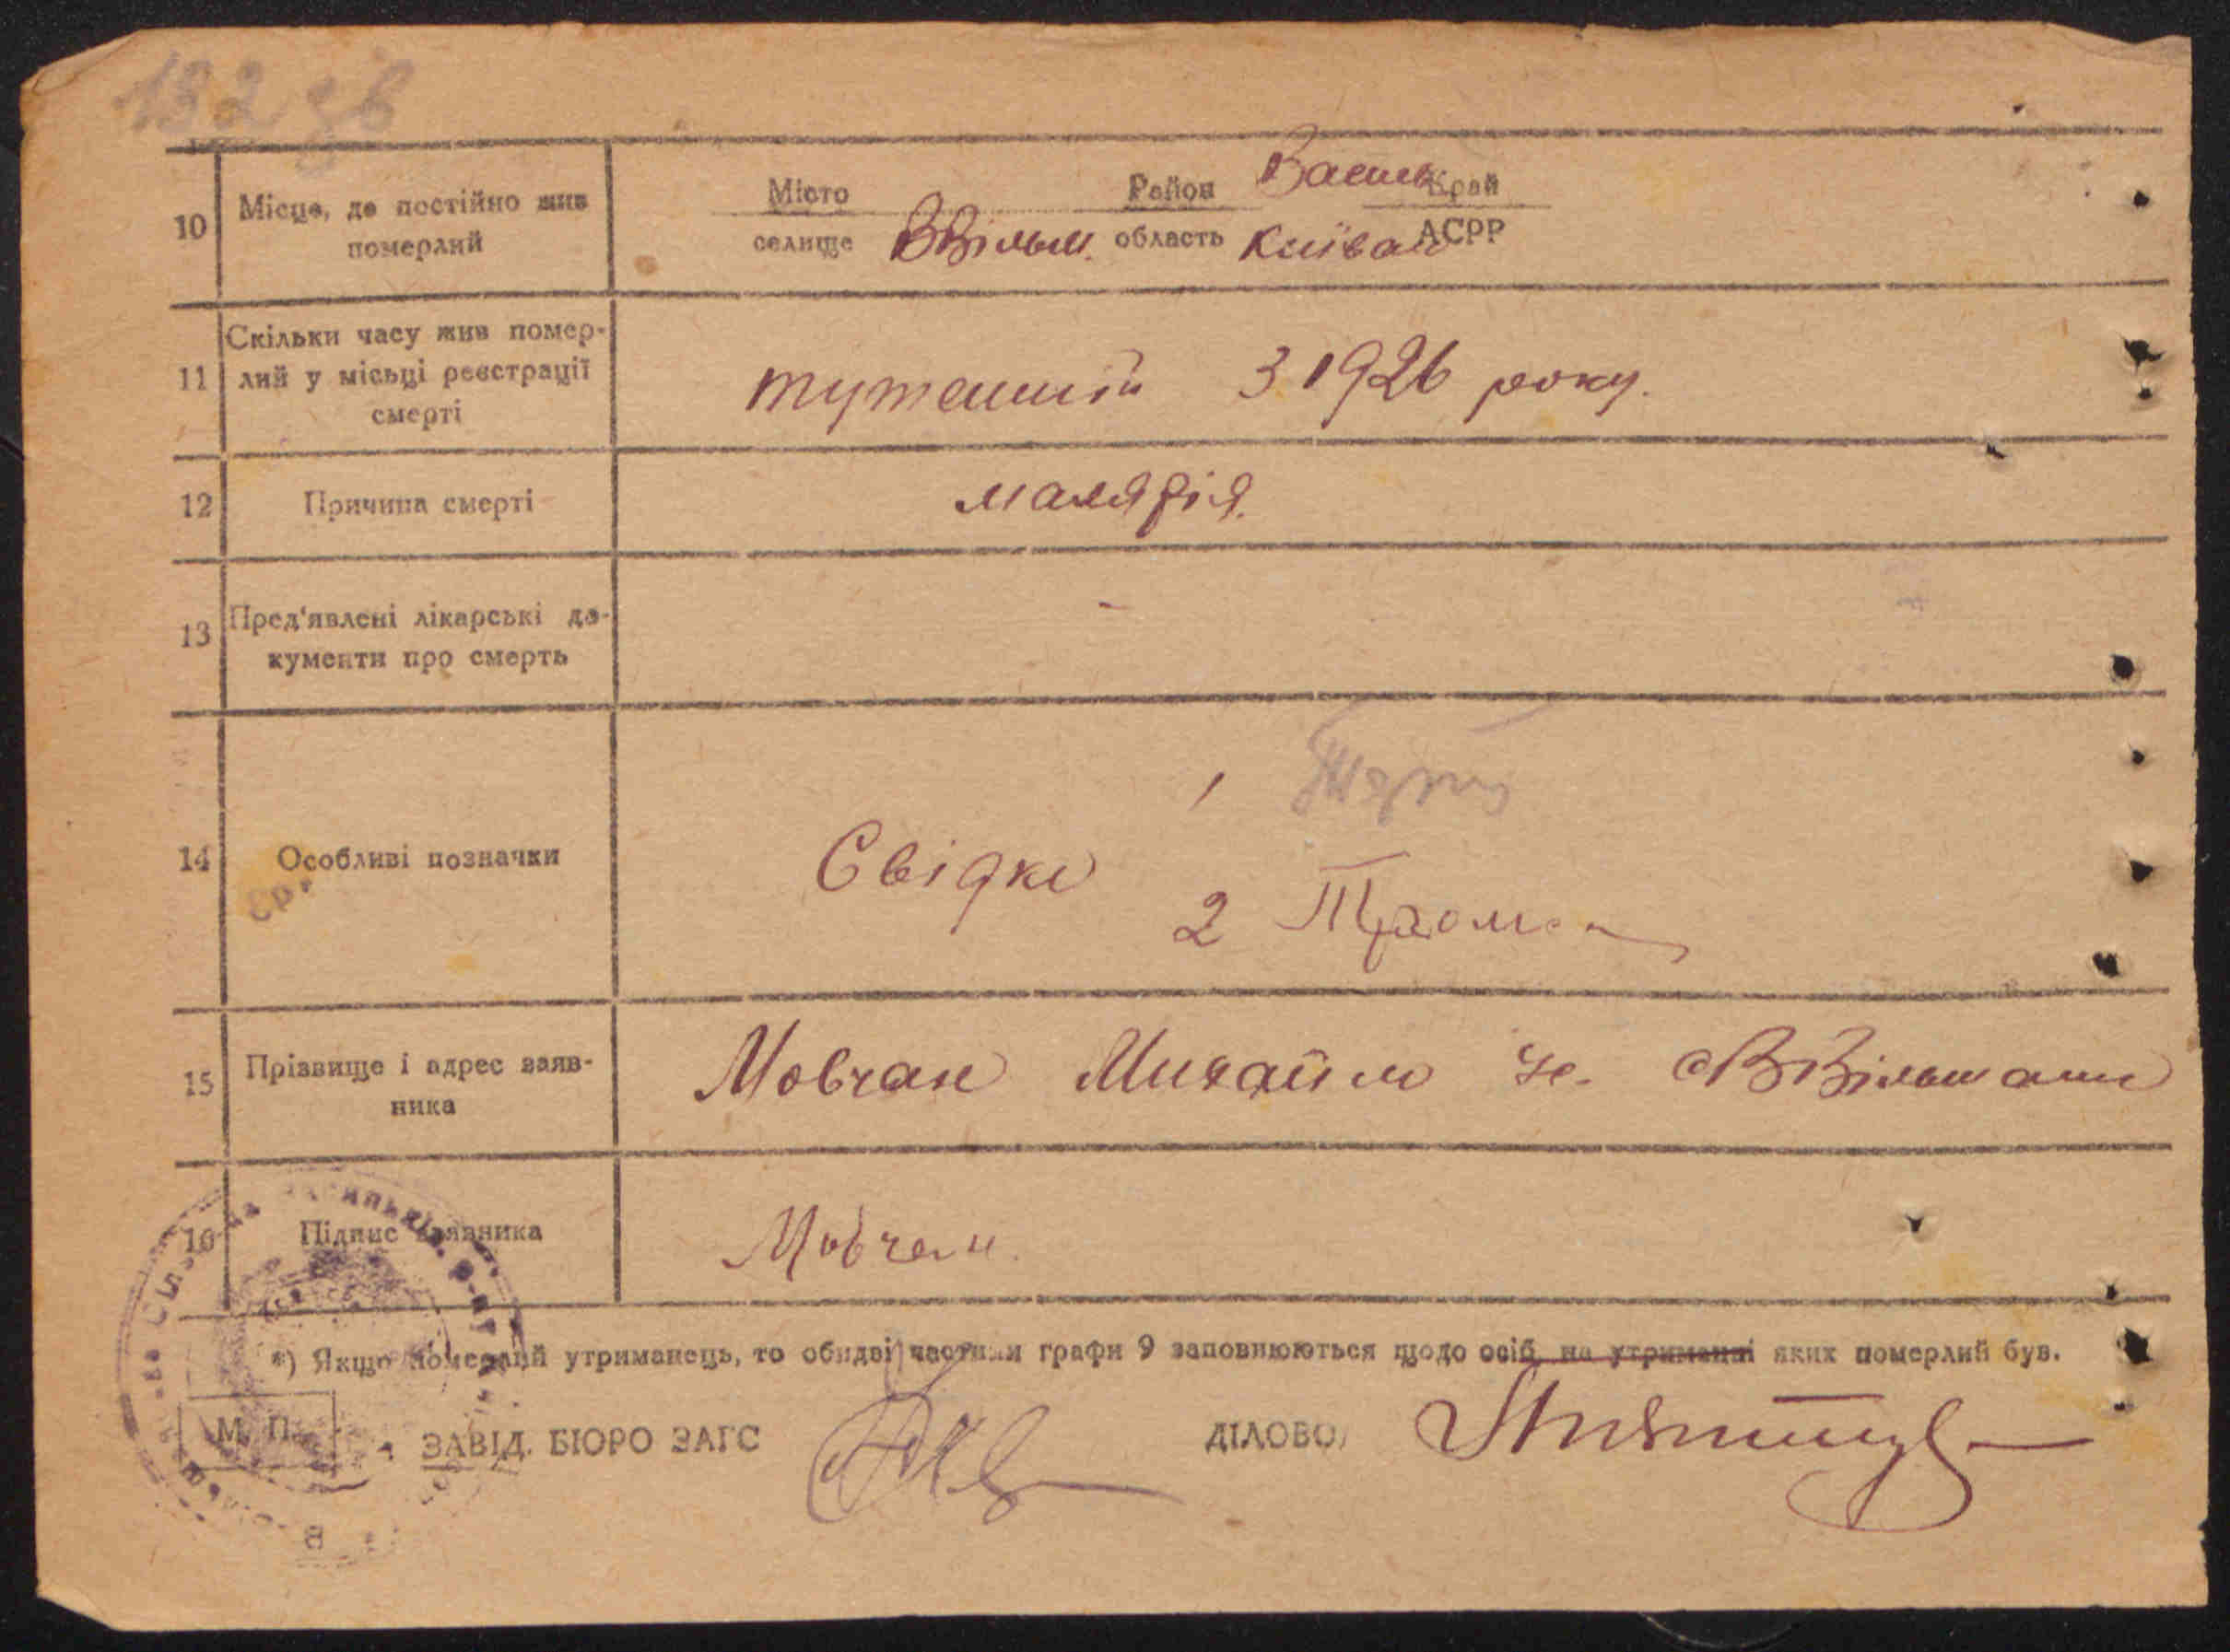 132
10 Місце, де постійно жив померлий
Місто Район Васильк Край
селище ВВільш. область Київськ АСРР
11 Скільки часу жив помер-
лий у місьці реєстрації
смерті
тутешній З 1926 року.
12 Причина смерті малярія.
13 Пред'явлені лікарські до-
кументи про смерть
-
1
14 Особливі позначки Свідки
2
15 Прізвище і адрес заяв-
ника
Мовчан Михайло с ВВільшани
16 Підпис заявника Мовчан
*) Якщо померлий утриманець, то обидві частини графи 9 заповнюються щодо осіб, на утриманні яких померлий був.
М. П. ЗАВІД. БЮРО ЗАГС ДІЛОВО